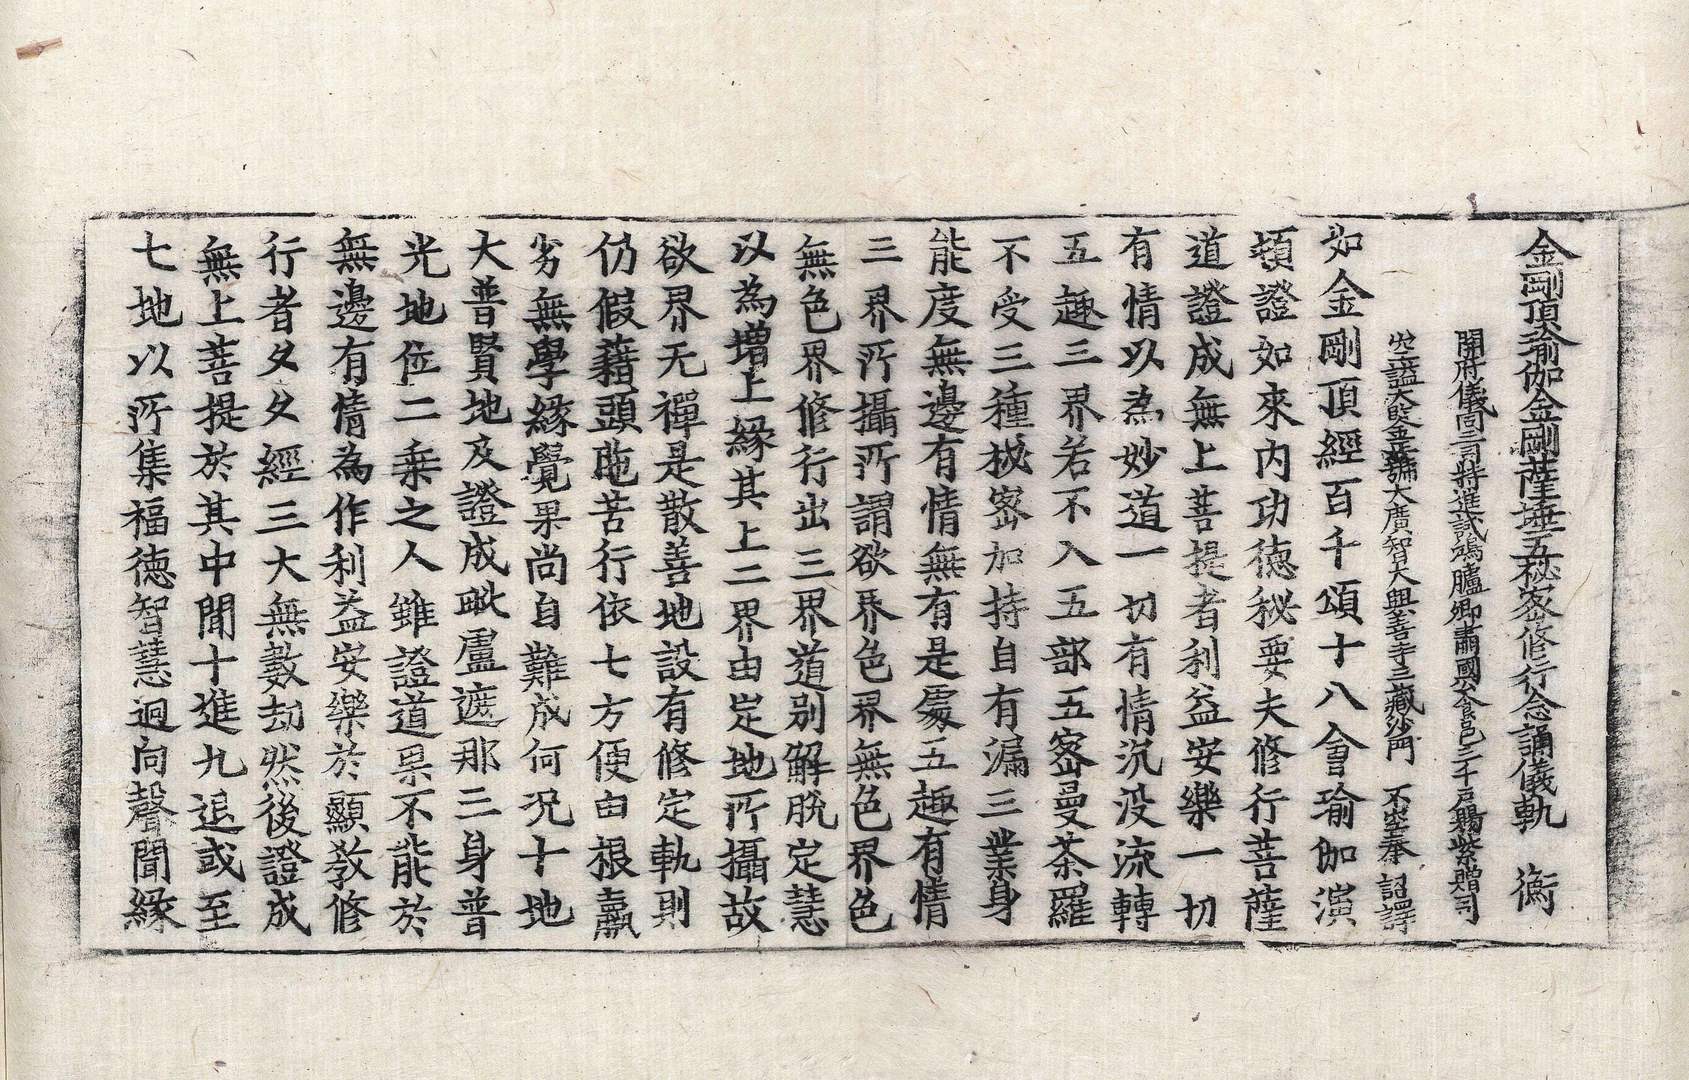 金剛頂瑜伽金剛薩埵五秘密修行念誦儀軌　衡
開府儀同三司特進試鴻臚卿肅國公食邑三千戶賜紫贈司
空謚大鑒正號大廣智大興善寺三藏沙門　不空奉　詔譯
如金剛頂經百千頌十八會瑜伽演
頓證如來內功德秘要夫修行菩薩
道證成無上菩提者利益安樂一切
有情以為妙道一切有情沉没流轉
五趣三界若不入五部五密曼荼羅
不受三種秘密加持自有漏三業身
能度無邊有情無有是處五趣有情
三界所攝所謂欲界色界無色界色
無色界修行出三界道別解脫定慧
以為增上緣其上二界由定地所攝故
欲界无禪是散善地設有修定軌則
仍假藉頭陁苦行依七方便由根羸
劣無學緣覺果尚自難成何況十地
大普賢地及證成毗盧遮那三身普
光地位二乘之人雖證道果不能於
無邊有情為作利益安樂於顯教修
行者久久經三大無數劫然後證成
無上菩提於其中間十進九退或至
七地以所集福德智慧迴向聲聞緣